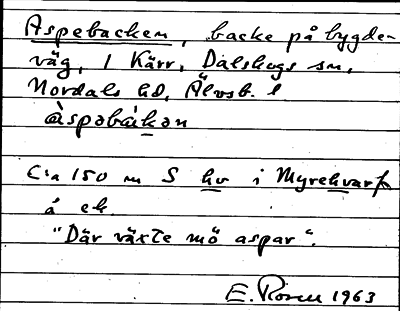 Aspebacken, backe på bygde-
väg, i Kärr, Dalskogs sn,
Nordals hd, Älvsb. l
àspəbákən
C:a 150 m S hv i Myrehvarf
å ek.
"Där växte mö aspar".
E. Rosen 1963